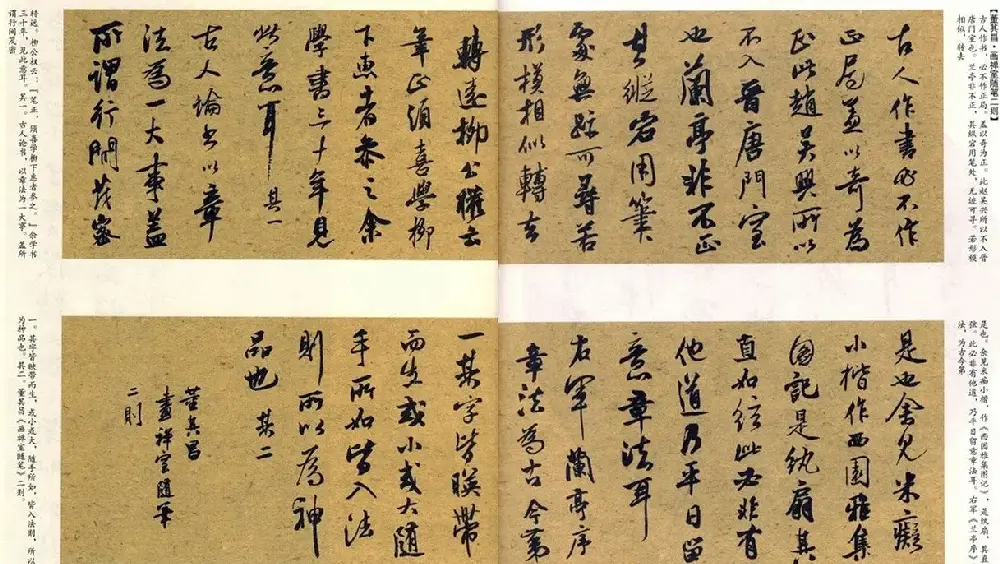 【董其昌·画禅室随笔二则】
古人作书,必不作正局。盖以奇为正。此赵吴兴所以不入晋
唐门室也。兰亭非不正,其纵宕用笔处,无迹可寻。若形模
相似,转去
古人作書必不作
正局蓋以奇為
正此趙吳興所以
不入晉唐門室
也蘭亭非不正
其縱宕用筆
處無跡可尋若
形模相似轉去
轉遠柳公權云
筆正須喜學柳
下惠者參之余
學書三十年見
此意耳 其一
古人論書以章
法為一大事蓋
所謂行間茂密
转远。柳公权云:“笔正,须喜学柳下惠者参之。”余学书
三十年,见此意耳。其一。古人论书,以章法为一大事。盖所
谓行间茂密
是也。余见米痴小楷,作《西园雅集图记》,是纨扇,其直
弦。此必非有他道,乃平日留意章法耳。右军《兰亭序》
法,为古今第
是也余見米癡
小楷作西園雅集
圖記是紈扇其
直如弦此必非有
他道乃平日留
意章法耳
右軍蘭亭序
章法為古今第
一其字皆映帶
而生或小或大隨
手所如皆入法
則所以為神
品也 其二
董其昌
畫禪室隨筆
二則
一。其字皆映带而生,或小或大,随手所如,皆入法则,所以
为神品也。其二。董其昌《画禅室随笔》二则。